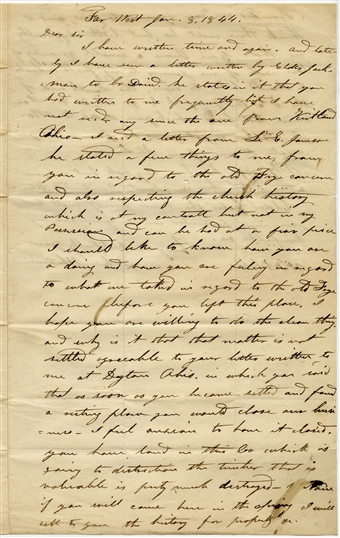 Far West Jan. 8, 1844.
Dear Sir
I have written time and again. and late-
ly I have seen a letter written by Elder Jack-
man to br David. he states in it that you
had written to me frequently but I have
not any since the one from Kirtland
Ohio – I a letter from L. E. Jonson
he stated a few things to me from
you in regard to the old concern
and also respecting the church history
which is at my controll but not in my
Possession and can be had at a fair price
I should like to know how you are
a doing and how you are feeling in regard
to what we talked in regard to the old
concern before you left this place. I
hope you are willing to do the clean thing
and why is it that that matter is not
settled agreeable to your letter written to
me at Dayton Ohio. in which you said
that as soon as you became settled and found
a resting place you would close our busi
-ness – I feel anxious to have it closed.
you have land in this Co which is
going to distruction the timber that is
valueable is prety much destroyed –
if you will come here in the spring I will
sell to you the history for property &c.